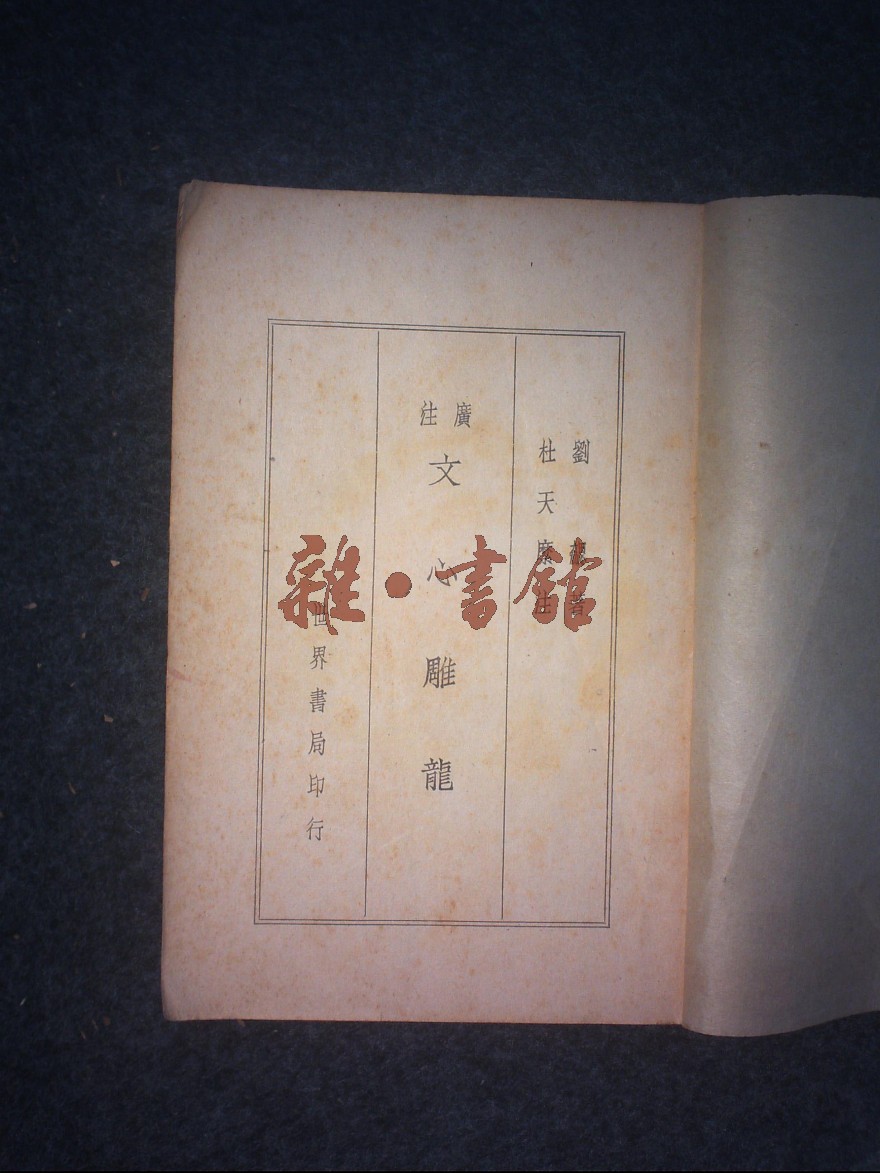 劉勰著
杜天縻注
廣注
文心雕龍
世界書局印行
雜·書館